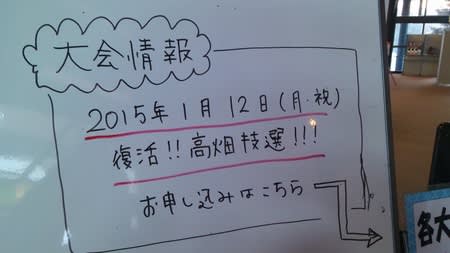 大会情報
2015年1月12日(月·祝)
復活!!高畑技選!!!
お申し込みはこちら
各大